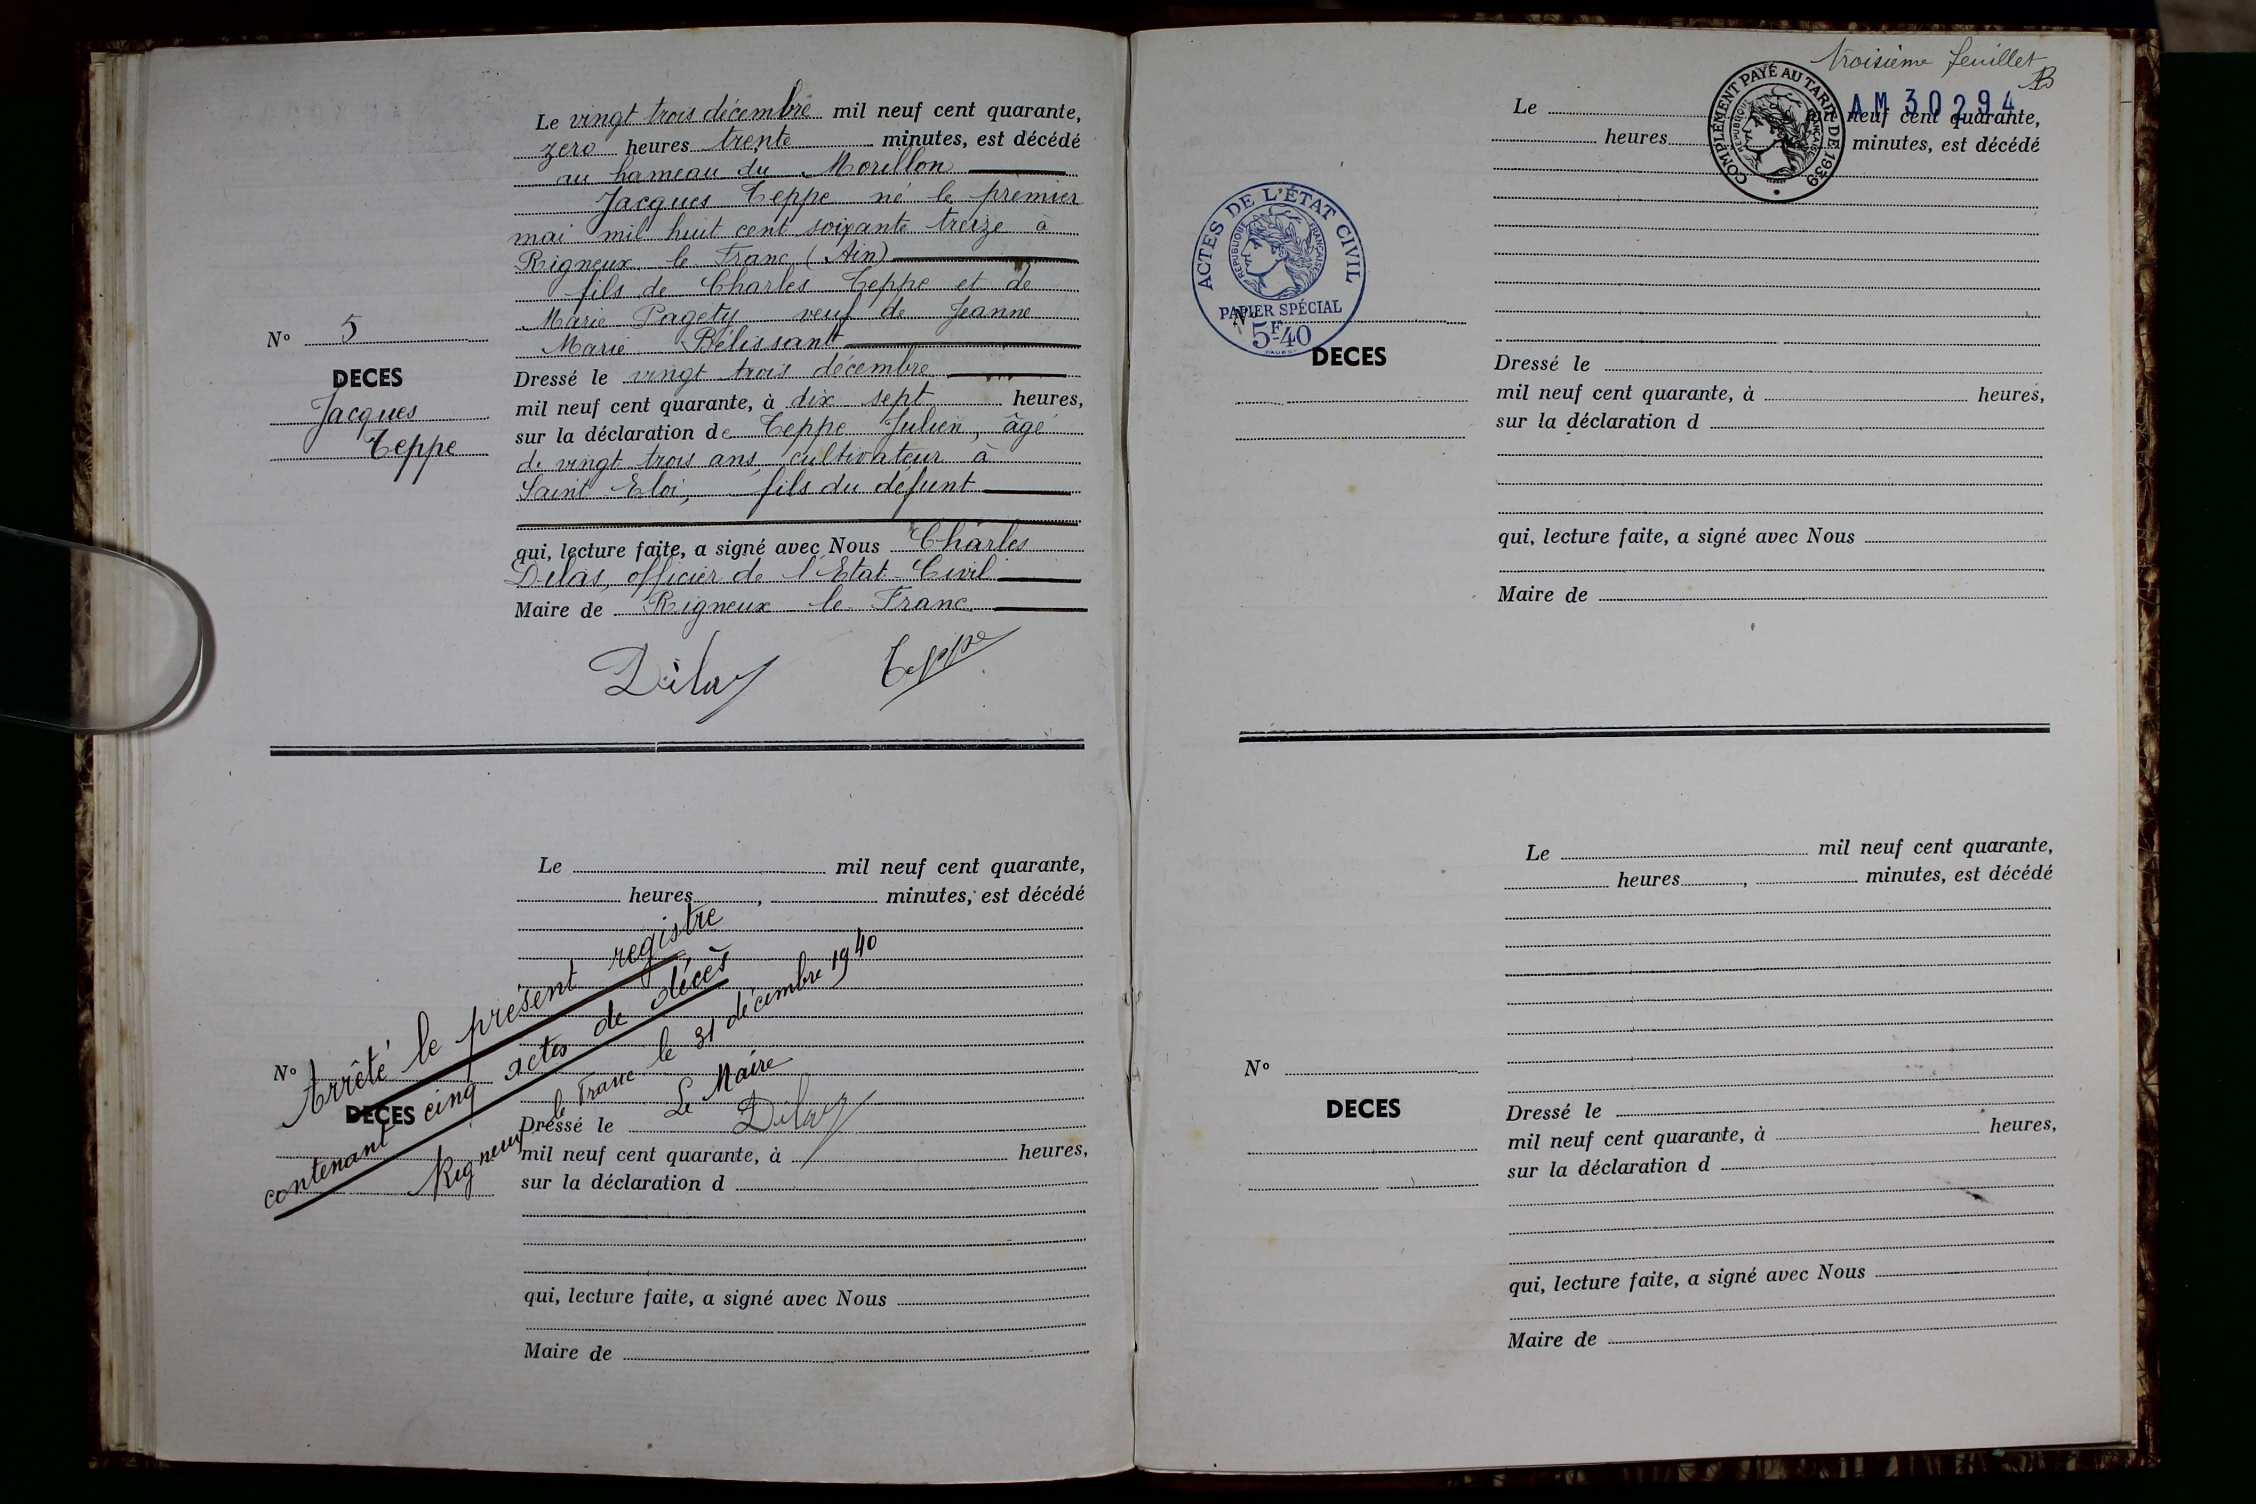 Le vingt trois décembre mil neuf cent quarante,
zero heures trente minutes, est décédé
au hameau du Morillon
Jacques Teppe né le premier
mai mil huit cent soixante treize à
Rigneux le Franc (Ain)
fils de Charles Teppe et de
Marie Pagety veuf de Jeanne
Marie Bélissant
N° 5
DECES
Jacques
Teppe
Dressé le vingt trois décembre
mil neuf cent quarante, à dix sept heures,
sur la déclaration de Teppe Julien, âgé
de vingt trois ans cultivateur à
Saint Eloi, fils du défunt
qui, lecture faite, a signé avec Nous Charles
Dilas, officier de l'Etat Civil
Maire de Rigneux le Franc
Dilas Teppe
Le mil neuf cent quarante,
heures , minutes, est décédé
N°
DECES
Arrêté le présent registre
contenant cinq actes de décès
Rigneux le Franc le 31 décembre 1940
Le Maire
Dilas
Dressé le
mil neuf cent quarante, à heures,
sur la déclaration d
qui, lecture faite, a signé avec Nous
Maire de
troisième feuillet
AM 30294
COMPLÉMENT PAYÉ AU TARIF DE 1939
REPUBLIQUE FRANÇAISE
Le mil neuf cent quarante,
heures minutes, est décédé
ACTES DE L'ÉTAT CIVIL
REPUBLIQUE FRANÇAISE
PAPIER SPÉCIAL
5F40
N°
DECES
Dressé le
mil neuf cent quarante, à heures,
sur la déclaration d
qui, lecture faite, a signé avec Nous
Maire de
Le mil neuf cent quarante,
heures , minutes, est décédé
N°
DECES
Dressé le
mil neuf cent quarante, à heures,
sur la déclaration d
qui, lecture faite, a signé avec Nous
Maire de